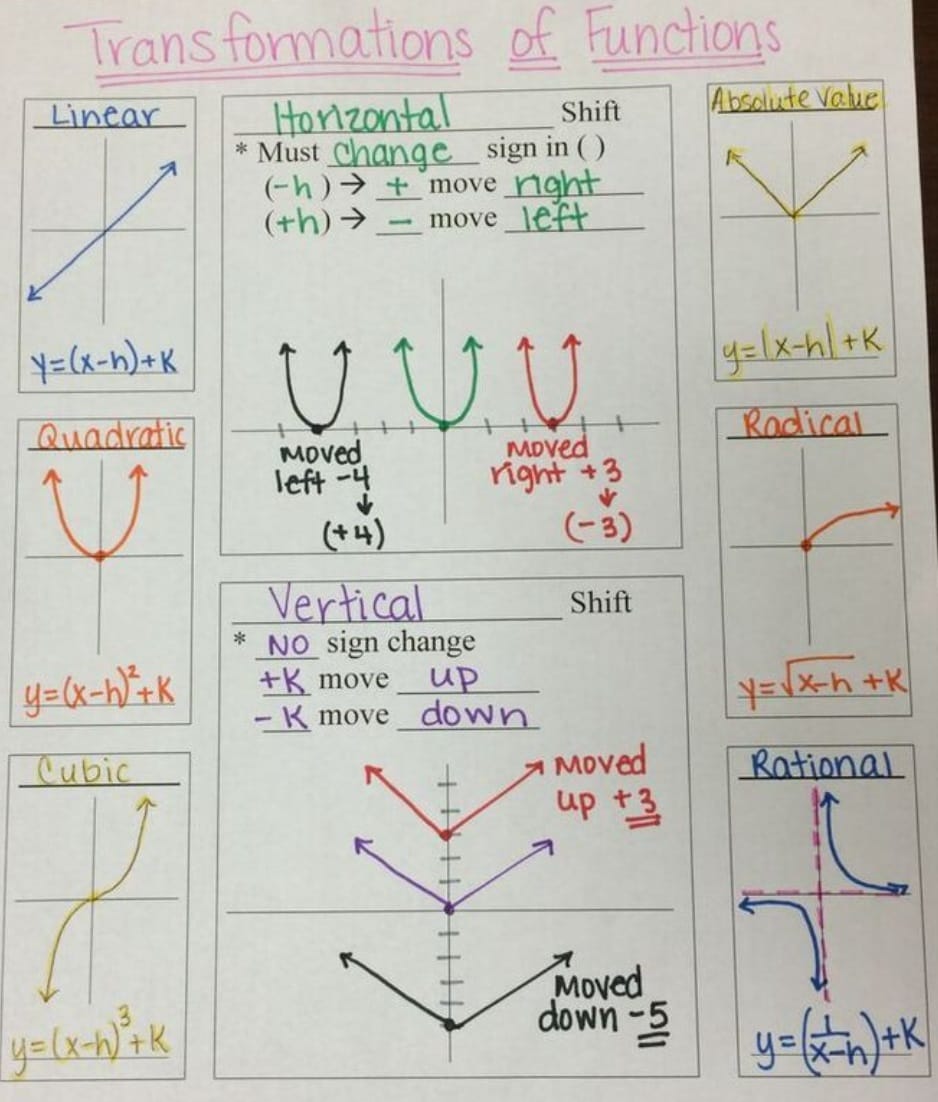 Transformations of Functions
Linear
y=(x-h)+K
Quadratic
y=(x-h)²+K
Cubic
y=(x-h)³+K
Horizontal Shift
* Must change sign in ( )
(-h) → + move right
(+h) → - move left
Moved
left -4
↓
(+4)
Moved
right +3
↓
(-3)
Vertical Shift
* NO sign change
+K move up
-K move down
Moved
up +3
Moved
down -5
Absolute Value
y=|x-h|+K
Radical
y=√x-h +K
Rational
y=(1/x-h)+K